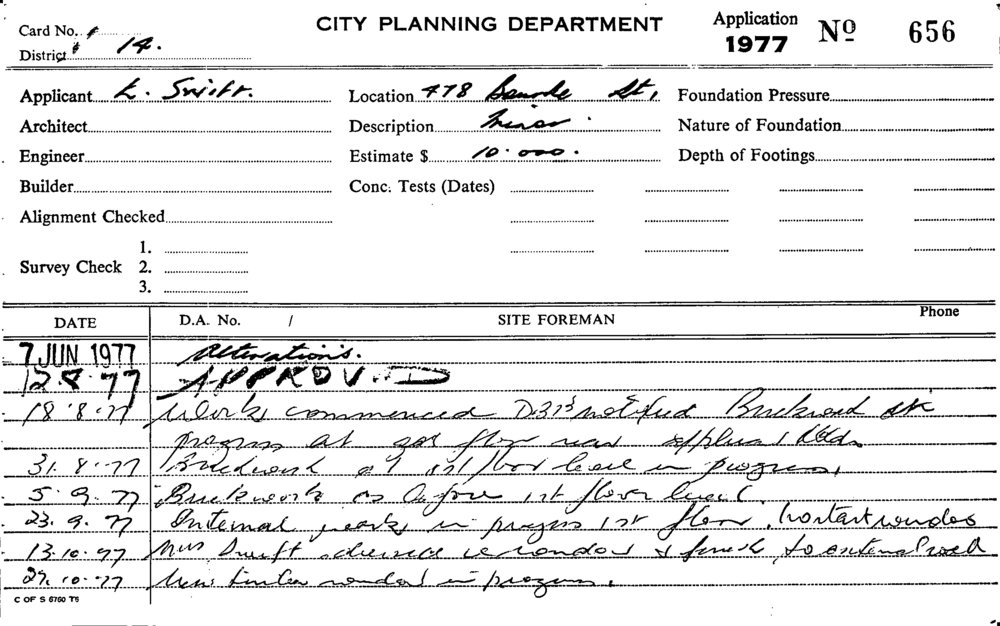 CITY PLANNING DEPARTMENT
Card No.
District 14.
Application 1977 Nº 656
Applicant L. Swift. Location 478 Bourke St, Foundation Pressure
Architect Description Minor. Nature of Foundation
Engineer Estimate $ 10.000. Depth of Footings
Builder Conc. Tests (Dates)
Alignment Checked
1.
Survey Check 2.
3.
DATE D.A. No. / SITE FOREMAN Phone
7 JUN 1977 Alterations.
12.8.77 APPROVED
18.8.77 Works commenced notified Brickwork
progress at floor rear
31.8.77 Brickwork at 1st floor level in progress.
5.9.77 Brickwork as before 1st floor level.
23.9.77 Internal works in progress 1st floor.
13.10.77 Mrs Swift & finish to external wall
27.10.77 New timber in progress.
C OF S 6760 T6